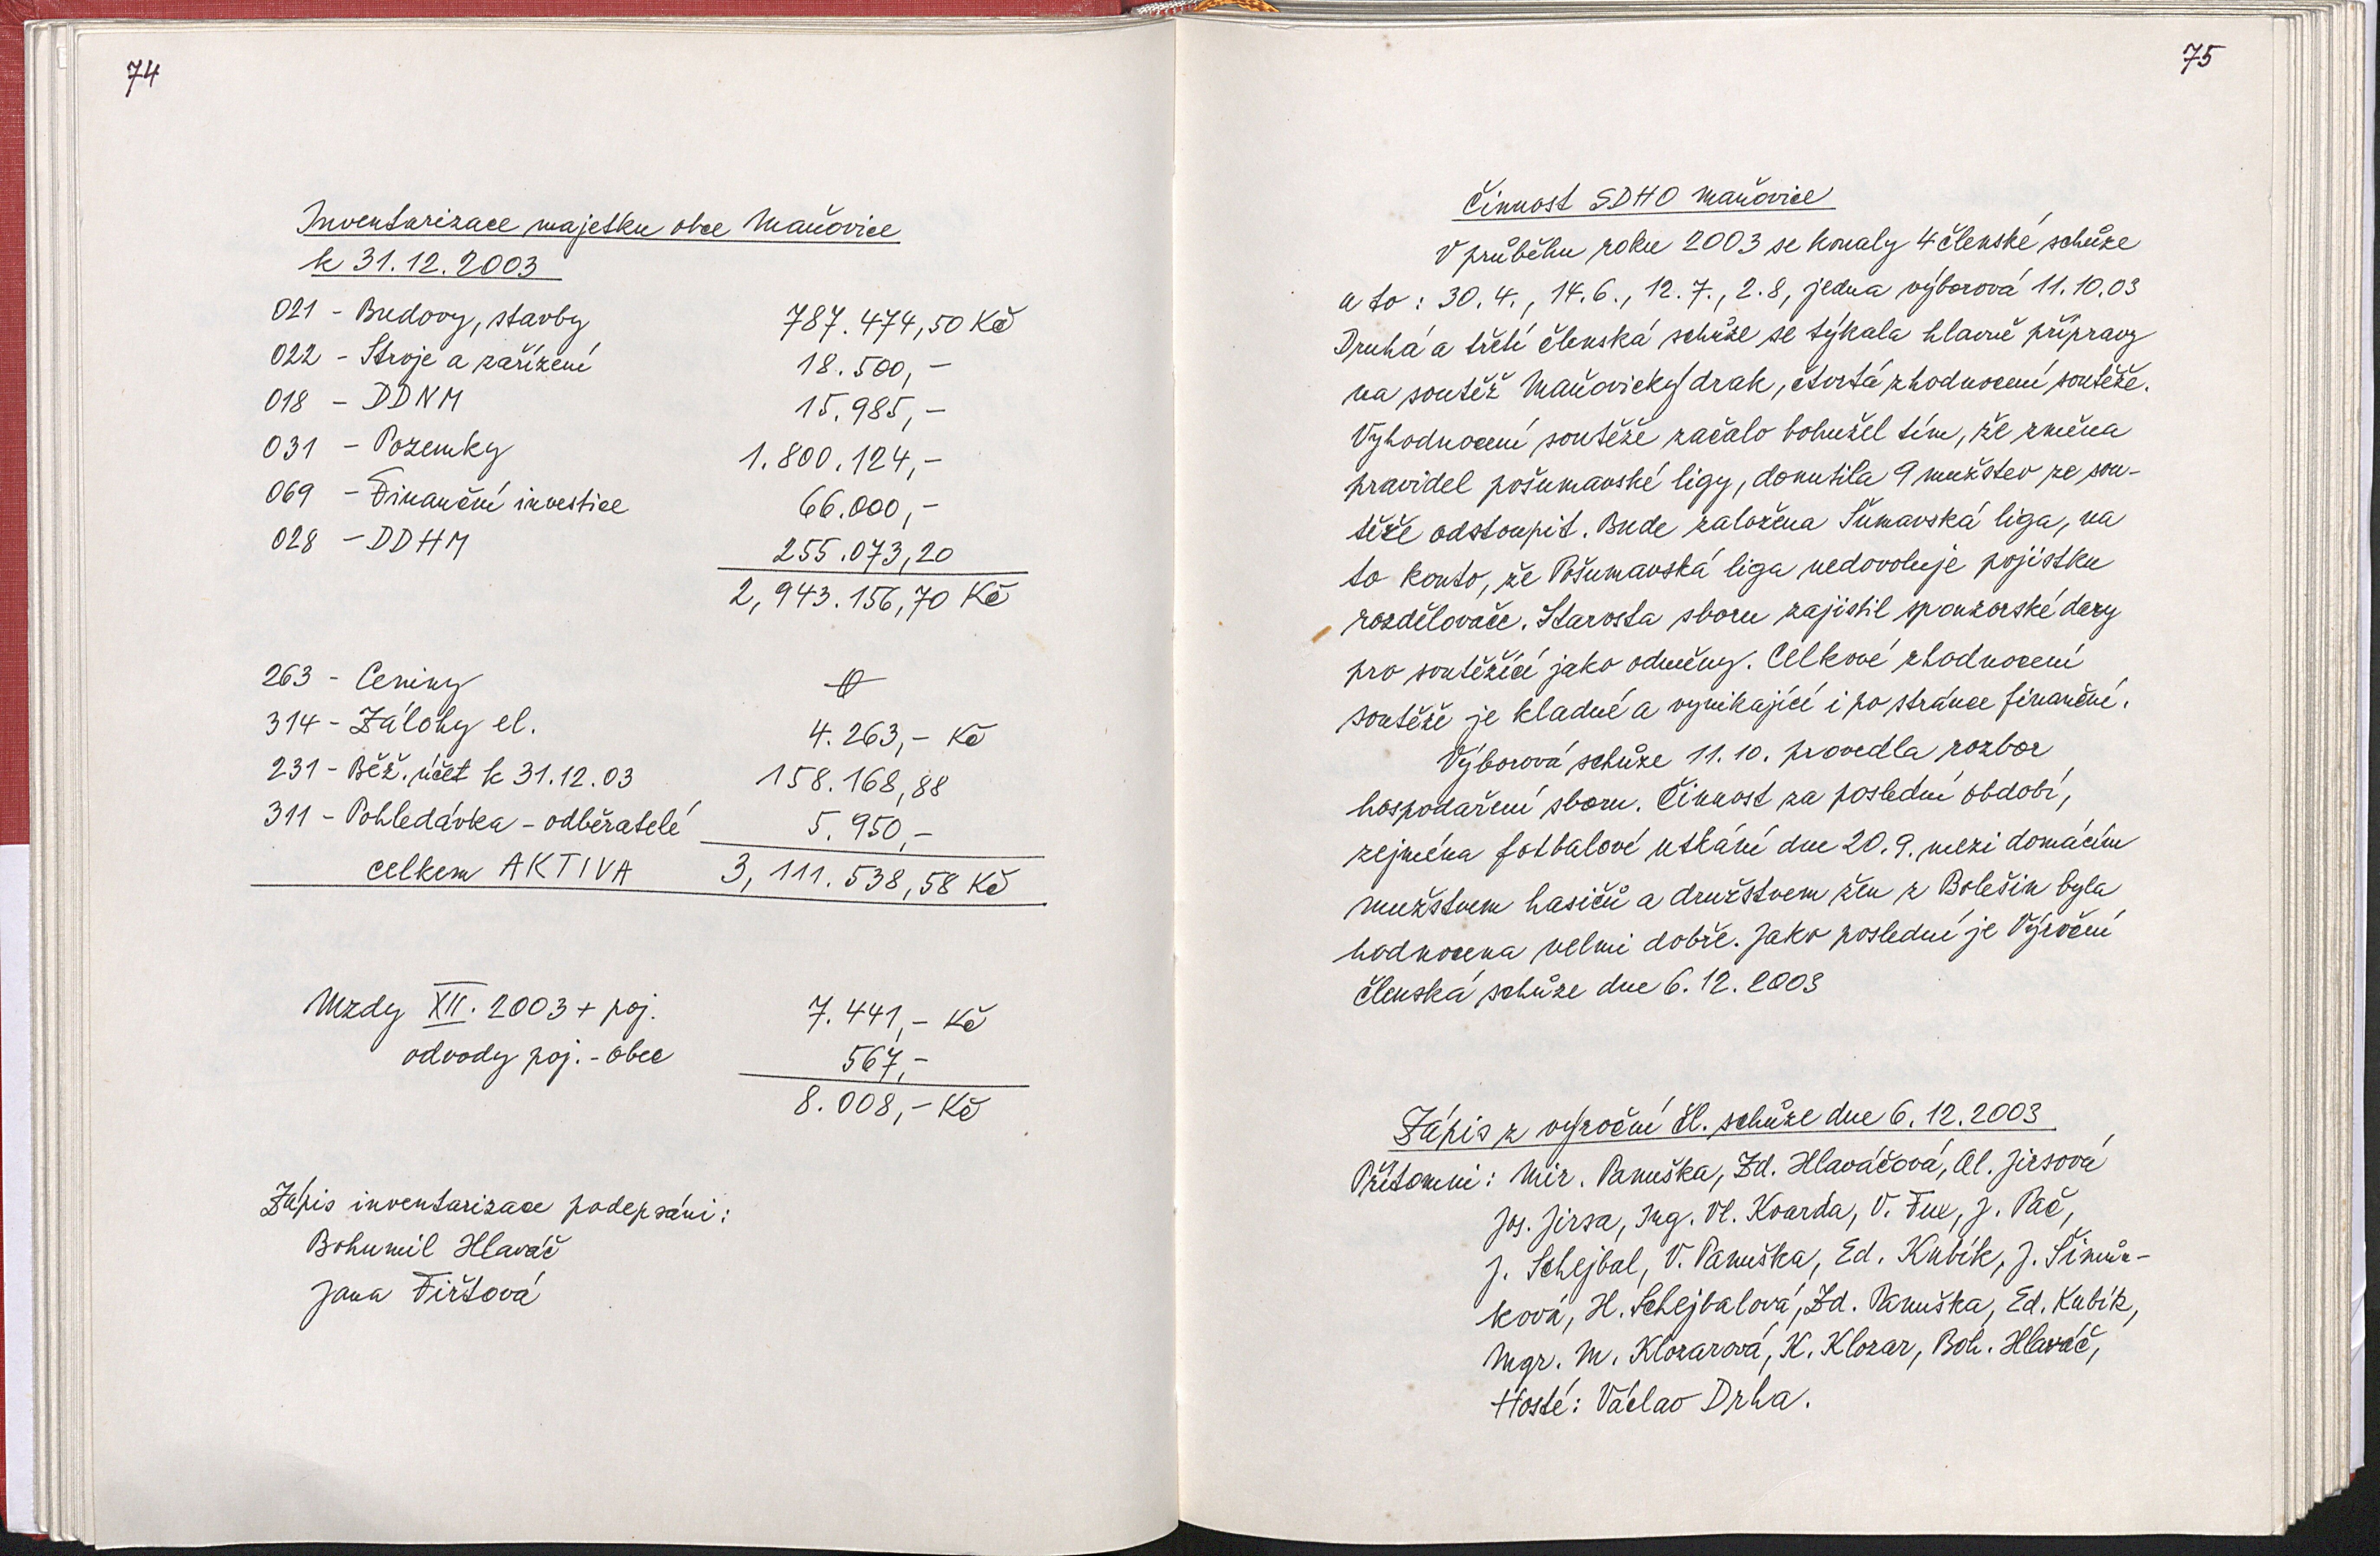 74
Inventarizace majetku obce Maňovice
k 31.12.2003
021 - Budovy, stavby 787.474,50 Kč
022 - Stroje a zařízení 18.500,-
018 - DDNM 15.985,-
031 - Pozemky 1.800.124,-
069 - Finanční investice 66.000,-
028 - DDHM 255.073,20
2,943.156,70 Kč
263 - Ceniny 0
314 - Zálohy el. 4.263,- Kč
231 - Běž. účet k 31.12.03 158.168,88
311 - Pohledávka - odběratelé 5.950,-
celkem AKTIVA 3,111.538,58 Kč
Mzdy XII. 2003 + poj. 7.441,- Kč
odvody poj. - obec 567,-
8.008,- Kč
Zápis inventarizace podepsáni:
Bohumil Hlaváč
Jana Firštová
75
Činnost SDHO Maňovice
V průběhu roku 2003 se konaly 4 členské schůze
a to: 30.4., 14.6., 12.7., 2.8, jedna výborová 11.10.03
Druhá a třetí členská schůze se týkala hlavně přípravy
na soutěž Maňovický drak, čtvrtá zhodnocení soutěže.
Vyhodnocení soutěže začalo bohužel tím, že změna
pravidel pošumavské ligy, donutila 9 mužstev ze sou-
těže odstoupit. Bude založena Šumavská liga, na
to konto, že Pošumavská liga nedovoluje pojistku
rozdělovače. Starosta sboru zajistil sponzorské dary
pro soutěžící jako odměny. Celkové zhodnocení
soutěže je kladné a vynikající i po stránce finanční.
Výborová schůze 11.10. provedla rozbor
hospodaření sboru. Činnost za poslední období,
zejména fotbalové utkání dne 20.9. mezi domácím
mužstvem hasičů a družstvem žen z Bolešin byla
hodnocena velmi dobře. Jako poslední je Výroční
členská schůze dne 6.12.2003
Zápis z výroční čl. schůze dne 6.12.2003
Přítomni: Mir. Panuška, Zd. Hlaváčová, Al. Jirsová
Jos. Jirsa, Ing. Vl. Kvarda, V. Fux, J. Pač,
J. Schejbal, V. Panuška, Ed. Kubík, J. Šimůn-
ková, H. Schejbalová, Zd. Panuška, Ed. Kubík,
Mgr. M. Klozarová, K. Klozar, Boh. Hlaváč,
Hosté: Václav Drha.